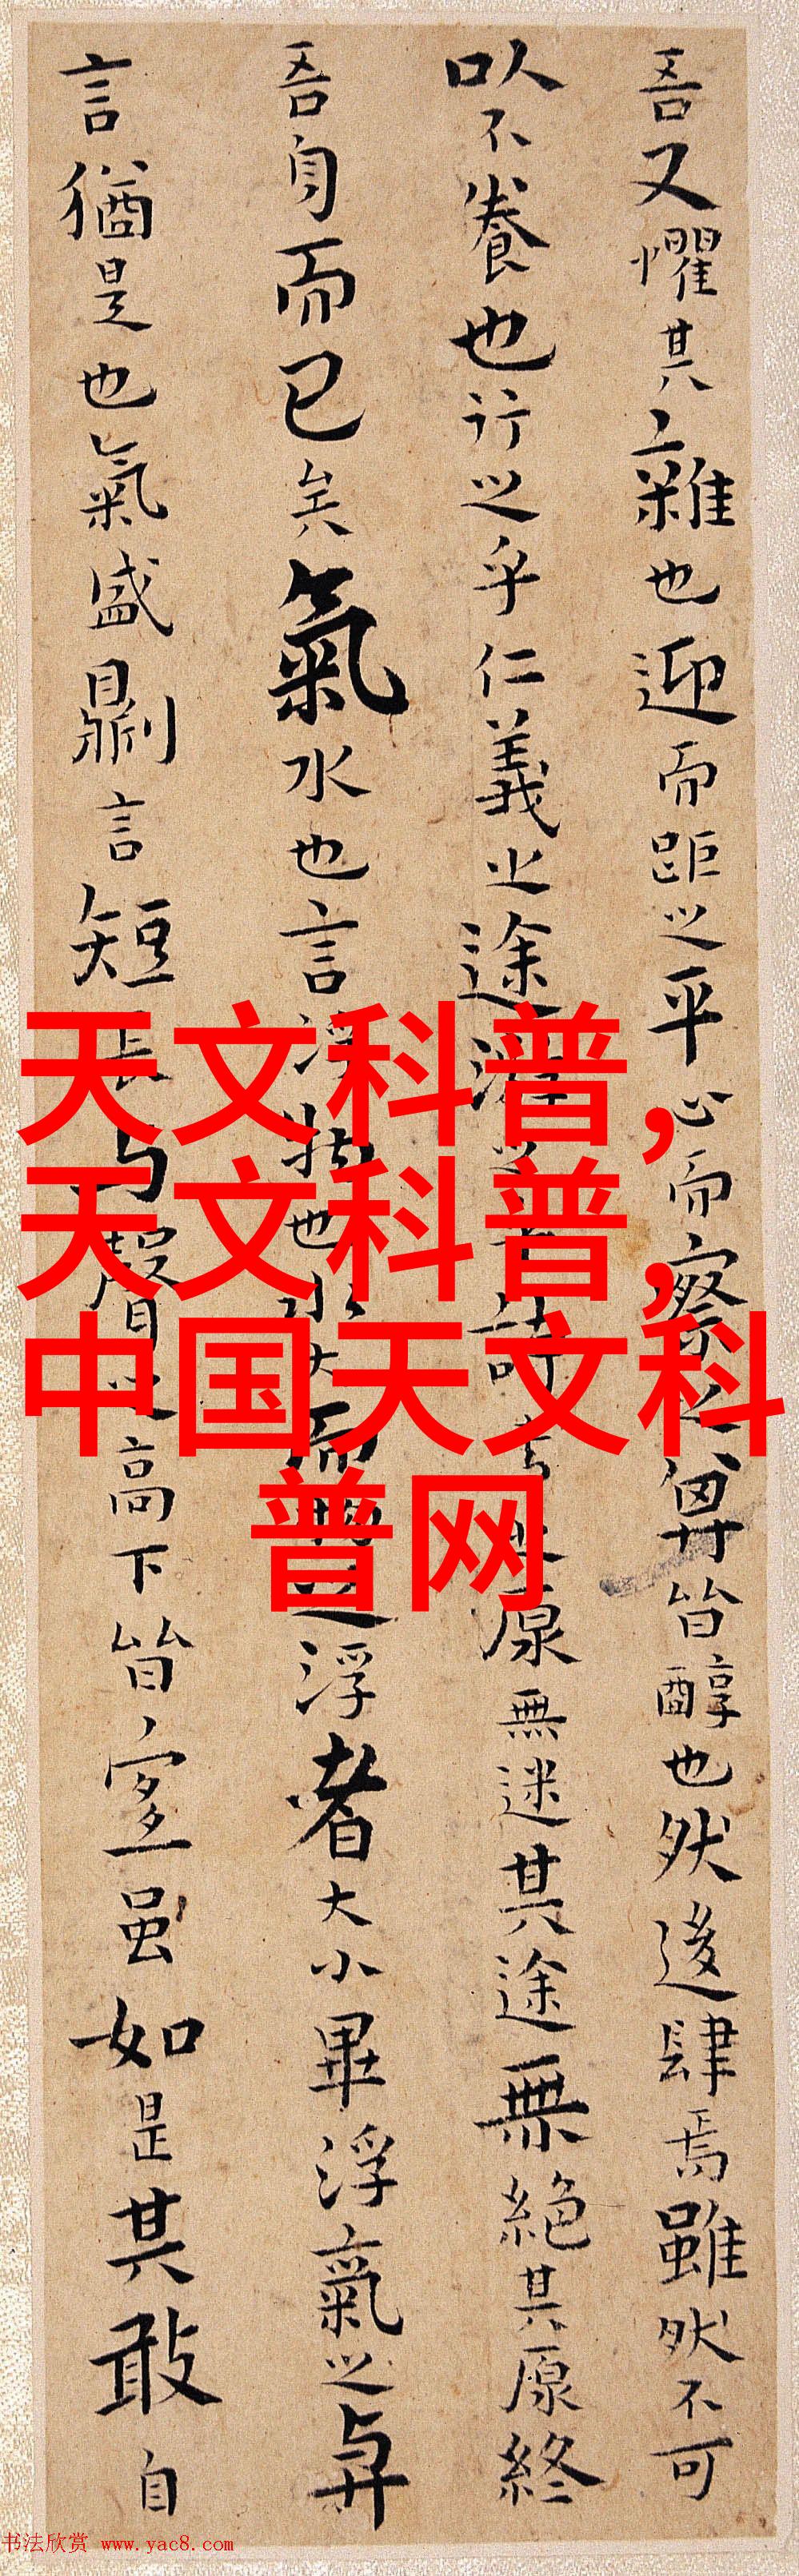 吾又懼其雜也迎而距之平心而察之其皆醇也然後肆焉雖然不可
以不養也行之乎仁義之途游之乎詩書之原無迷其途無絕其原終
吾身而已矣氣水也言浮物也水大而物之浮者大小畢浮氣之與
言猶是也氣盛則言短長與聲之高下皆宜虽如是其敢自
天文科普,
天文科普,
中国天文科
普网
书法欣赏 www.yac8.com